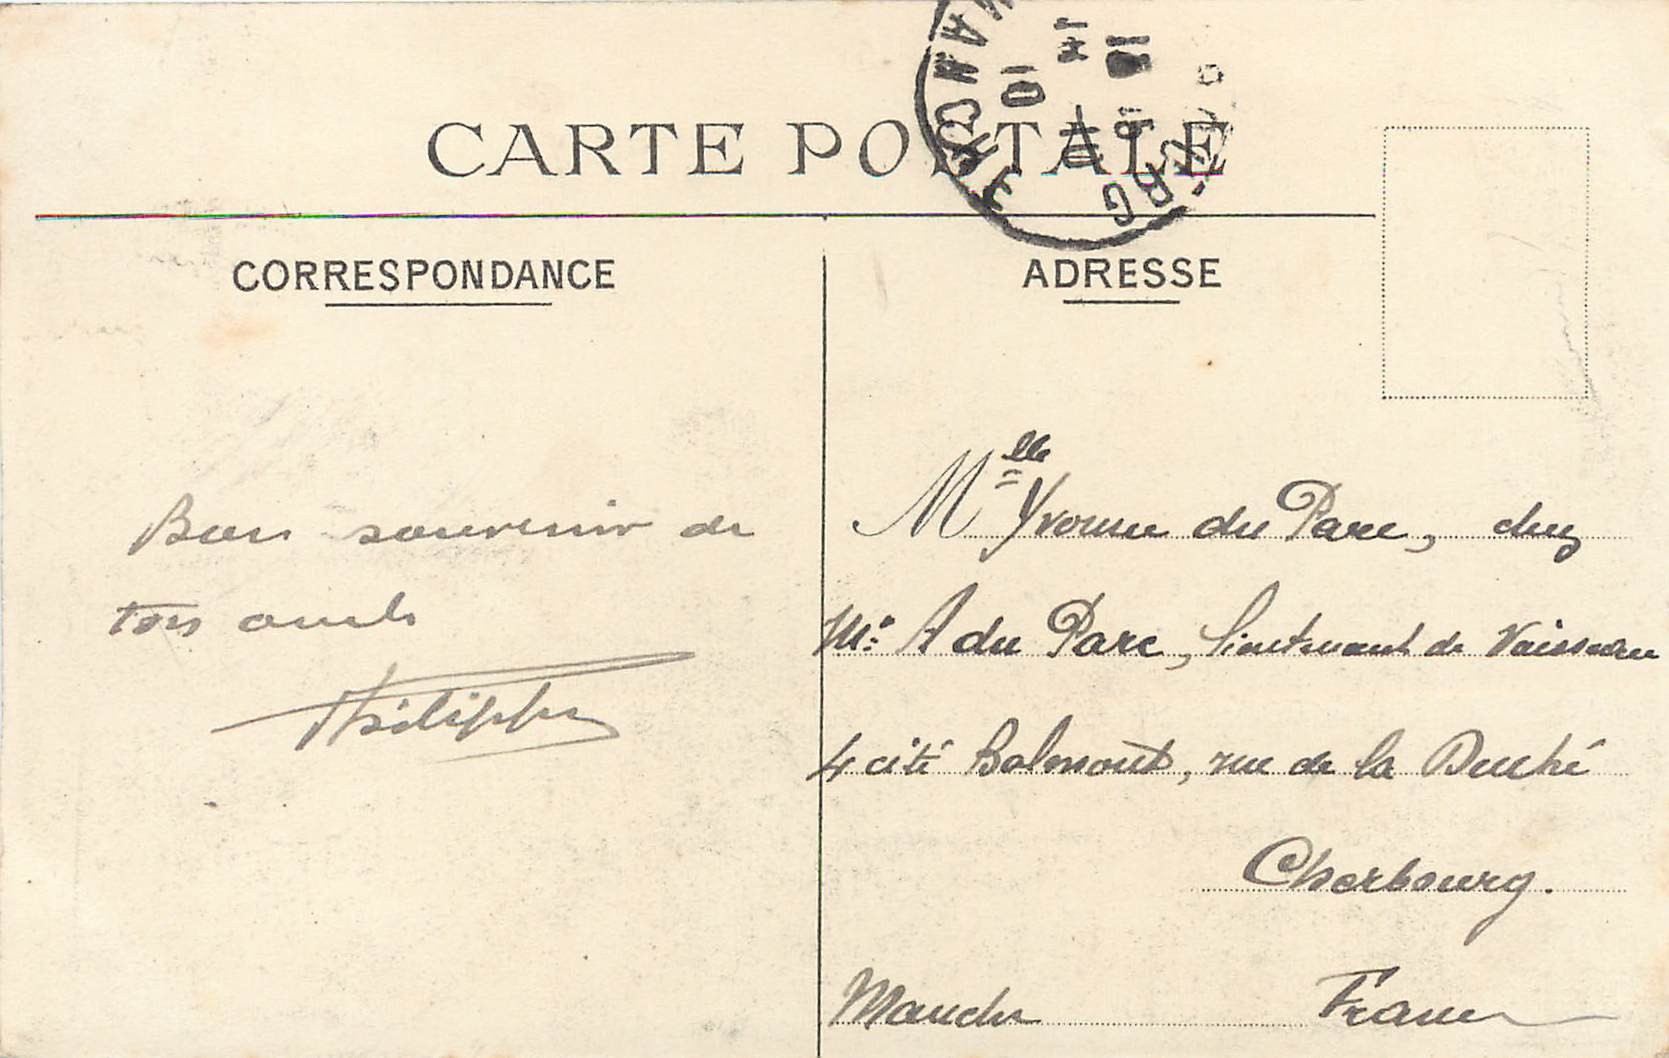 CARTE POSTALE
CORRESPONDANCE
ADRESSE
Bon souvenir de
ton oncle
Philippe
Mlle Yvonne du Parc, chez
Mr A du Parc, lieutenant de Vaisseau
4 cité Balmont, rue de la Duché
Cherbourg.
Manche France
MANCHE
10